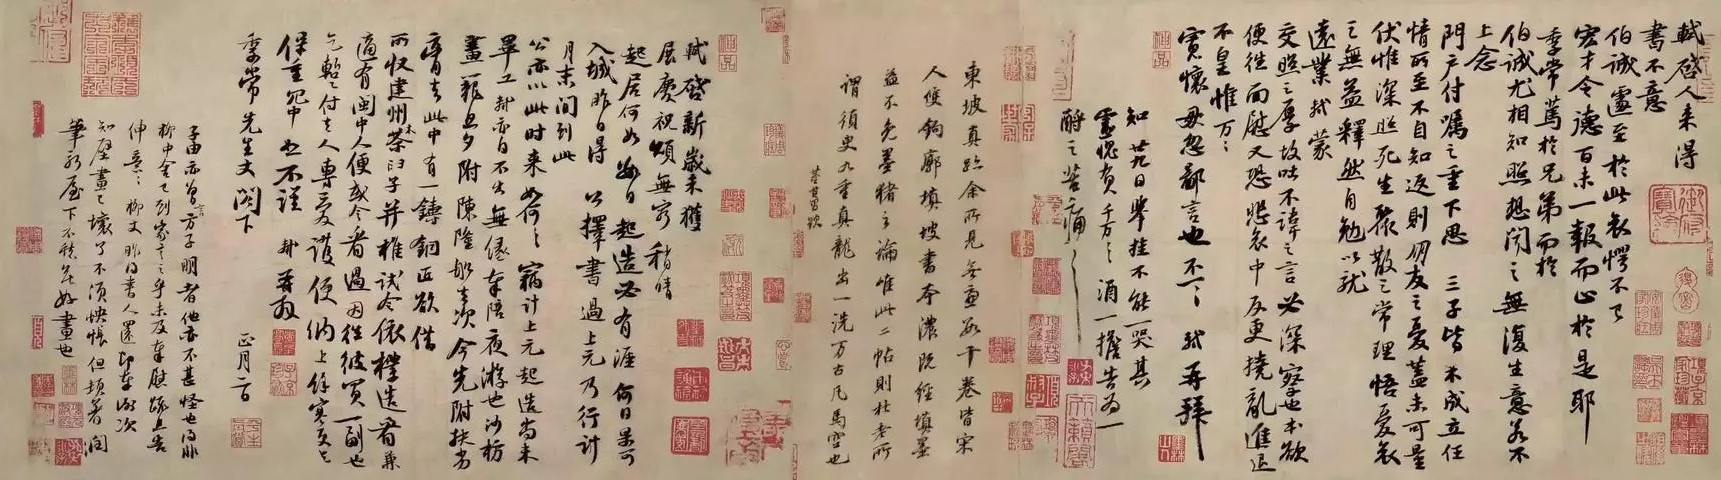 軾啓人来得
書不意
伯誠遽至於此哀愕不已
宏才令德百未一報而止於是耶
季常篤於兄弟而於
伯誠尤相知照想聞之無復生意若不
上念
門户付囑之重下思三子皆未成立任
情所至不自知返則朋友之憂蓋未可量
伏惟深照死生聚散之常理悟憂哀
之無益釋然自勉以就
遠業軾蒙
交照之厚故吐不諱之言必深察也本欲
便往面慰又恐悲哀中反更撓亂進退
不皇惟万〻
寬懷毋忽鄙言也不一〻軾再拜
知廿九日舉挂不能一哭其
靈愧負千万〻〻酒一擔告為一
酹之苦痛〻〻
東坡真跡余所見無慮數十卷皆宋
人雙鉤廓填坡書本濃既經填墨
益不免墨猪之論唯此二帖則杜老所
謂須臾九重真龍出一洗万古凡馬空也
董其昌跋
軾啓新歲未獲
展慶祝頌無窮稍晴
起居何如數日起造必有涯何日果可
入城昨日得公擇書過上元乃行計
月末間到此
公亦以此时来如何〻〻竊計上元起造尚未
畢工軾亦自不出無緣奉陪夜游也沙枋
畫籠旦夕附陳隆舩去次今先附扶劣
膏去此中有一鑄銅匠欲借
所收建州木茶臼子并椎試令依樣造看兼
適有閩中人便或令看過因往彼買一副也
乞暫付去人專愛護便納上餘寒更乞
保重冗中恕不謹軾再拜
季常先生丈閤下
正月二日
子由亦曾言方子明者他亦不甚怪也得非
柳中舍已到家言之乎未及奉慰疏且告
伸意〻〻柳丈昨得書人還即奉謝次
知壁畫已壞了不須怏悵但頓著潤
筆新屋下不愁無好畫也